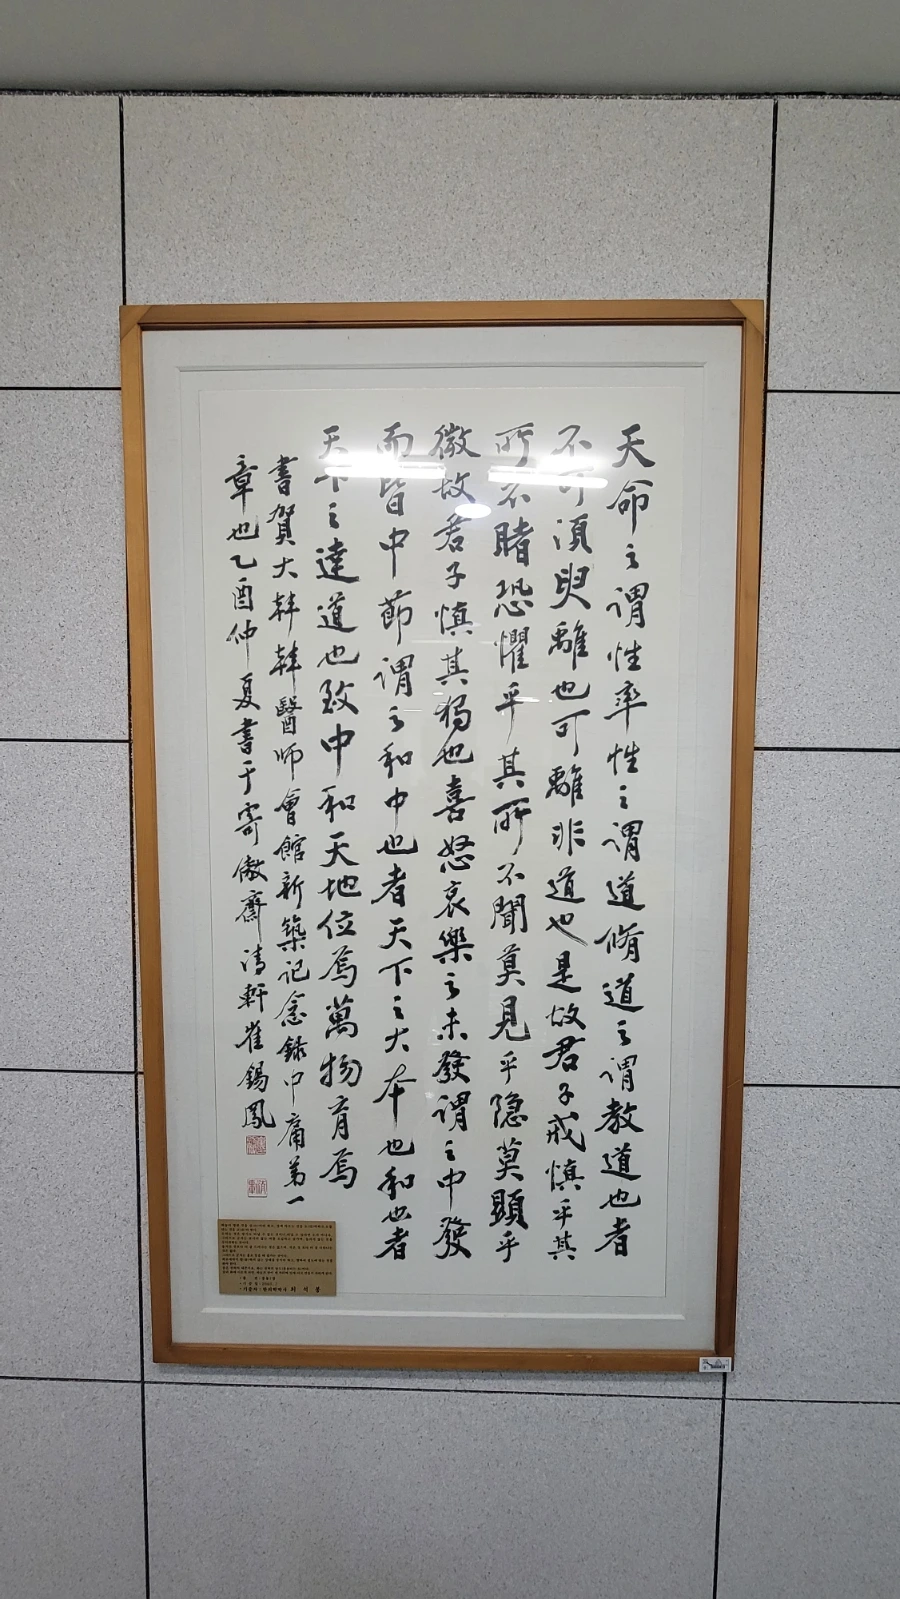 天命之謂性率性之謂道脩道之謂教道也者
不可須臾離也可離非道也是故君子戒慎乎其
所不睹恐懼乎其所不聞莫見乎隐莫顯乎
微故君子慎其獨也喜怒哀樂之未發謂之中發
而皆中節謂之和中也者天下之大本也和也者
天下之達道也致中和天地位焉萬物育焉
書賀大韓韓醫師會館新築記念錄中庸第一
章也乙酉仲夏書于寄傲齋清軒崔錫鳳